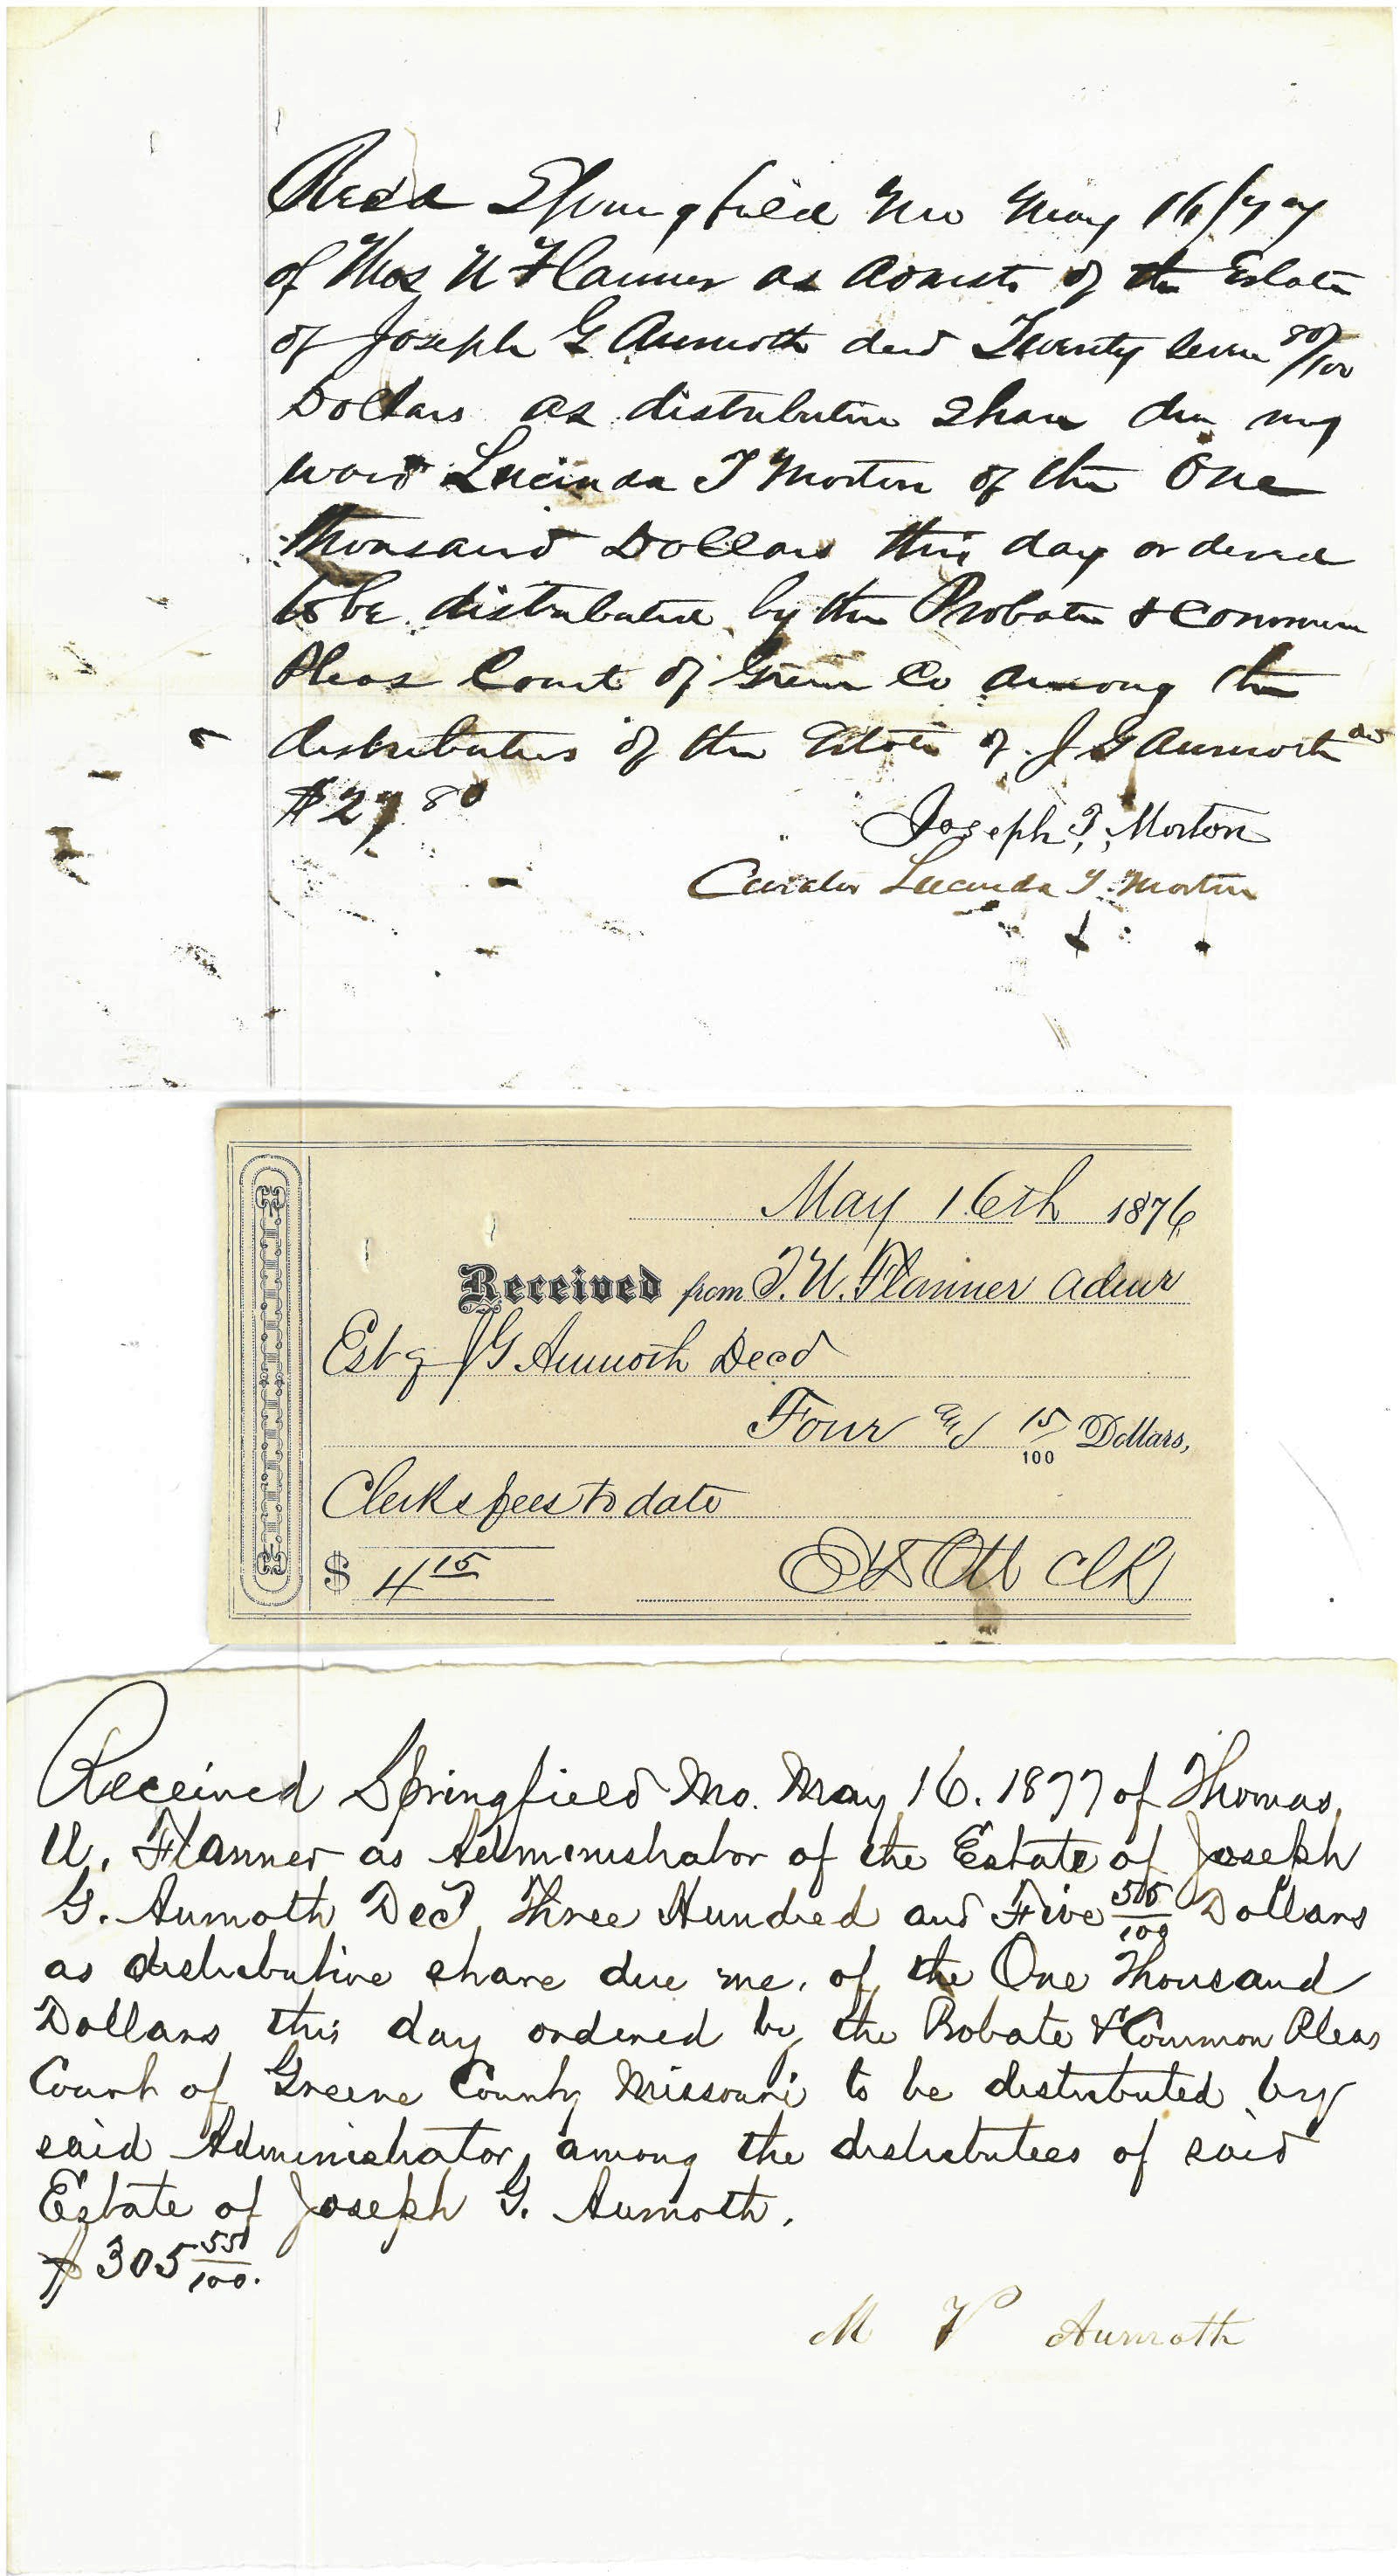 Recd Springfield Mo May 16/77
of Thos U Flanner as Admstr of the Estate
of Joseph G Aumoth decd Twenty seven 80/100
Dollars as distributive share due my
ward Lucinda T Morton of the One
thousand Dollars this day ordered
to be distributed by the Probate & Common
Pleas Court of Green Co among the
distributees of the Estate of J G Aumoth
$27 80
Joseph T. Morton
Curator Lucinda T Morton
May 16th 1876
Received from T. U. Flanner admr
Est of J G Aumoth Decd
Four and 15/100 Dollars,
Clerks fees to date
$ 4 15
Ott Clk
Received Springfield Mo. May 16. 1877 of Thomas
U. Flanner as Administrator of the Estate of Joseph
G. Aumoth Decd, Three Hundred and Five 55/100 Dollars
as distributive share due me, of the One Thousand
Dollars this day ordered by the Probate & Common Pleas
Court of Greene County Missouri to be distributed by
said Administrator, among the distributees of said
Estate of Joseph G. Aumoth.
$ 305 55/100.
M V Aumoth